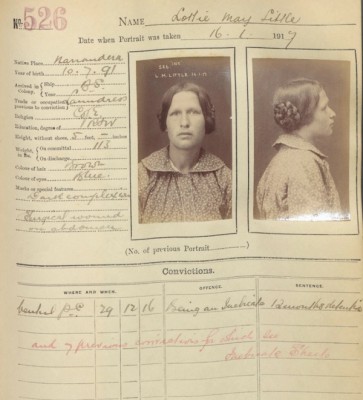 No. 526
NAME Lottie May Little
Date when Portrait was taken, 16-1-1917
Native Place, Narrandera
Year of birth 10.7.91
Arrived in Colony. Ship
Year
Trade or occupation previous to conviction Laundress
Religion C of E
Education, degree of R & W
Height, without shoes 5 feet - inches
Weight in lbs. On committal 113
On discharge
Colour of hair Brown
Colour of eyes Blue
Marks or special features:—
Dark complexion
Surgical wound
on abdomen
L.M.LITTLE 16-1-17
(No. of previous Portrait )
Convictions.
WHERE AND WHEN. OFFENCE. SENTENCE.
Central P.C 29 12 16 Being an Inebriate 12 months detention
and 7 previous convictions
Inebriate Sheets